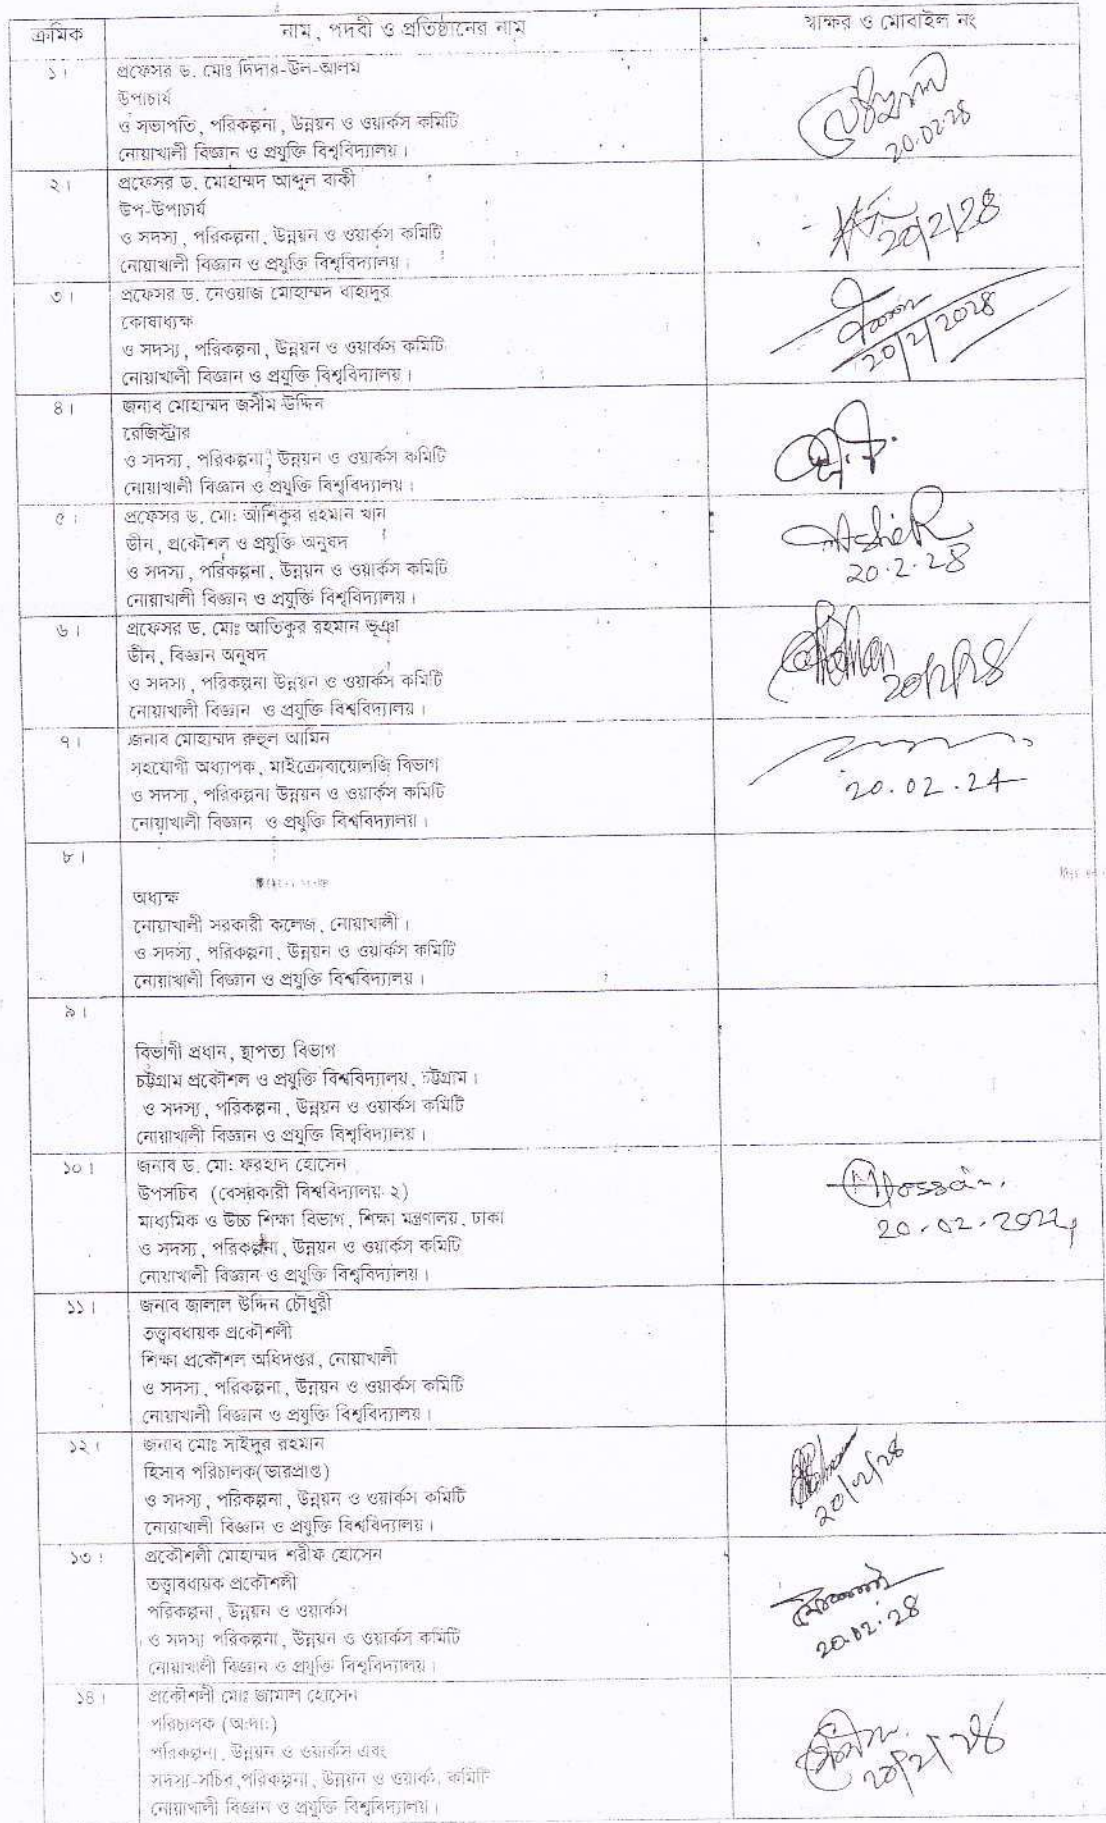 ক্রমিক	নাম, পদবী ও প্রতিষ্ঠানের নাম	স্বাক্ষর ও মোবাইল নং
১।	প্রফেসর ড. মোঃ দিদার-উল-আলম
উপাচার্য
ও সভাপতি, পরিকল্পনা, উন্নয়ন ও ওয়ার্কস কমিটি
নোয়াখালী বিজ্ঞান ও প্রযুক্তি বিশ্ববিদ্যালয়।
20.02.২৪
২।	প্রফেসর ড. মোহাম্মদ আব্দুল বাকী
উপ-উপাচার্য
ও সদস্য, পরিকল্পনা, উন্নয়ন ও ওয়ার্কস কমিটি
নোয়াখালী বিজ্ঞান ও প্রযুক্তি বিশ্ববিদ্যালয়।
২০/২/২৪
৩।	প্রফেসর ড. নেওয়াজ মোহাম্মদ বাহাদুর
কোষাধ্যক্ষ
ও সদস্য, পরিকল্পনা, উন্নয়ন ও ওয়ার্কস কমিটি
নোয়াখালী বিজ্ঞান ও প্রযুক্তি বিশ্ববিদ্যালয়।
২০/২/২০২৪
৪।	জনাব মোহাম্মদ জসীম উদ্দিন
রেজিস্ট্রার
ও সদস্য, পরিকল্পনা, উন্নয়ন ও ওয়ার্কস কমিটি
নোয়াখালী বিজ্ঞান ও প্রযুক্তি বিশ্ববিদ্যালয়।
৫।	প্রফেসর ড. মো: আশিকুর রহমান খান
ডীন, প্রকৌশল ও প্রযুক্তি অনুষদ
ও সদস্য, পরিকল্পনা, উন্নয়ন ও ওয়ার্কস কমিটি
নোয়াখালী বিজ্ঞান ও প্রযুক্তি বিশ্ববিদ্যালয়।
২০.২.২৪
৬।	প্রফেসর ড. মোঃ আতিকুর রহমান ভূঞা
ডীন, বিজ্ঞান অনুষদ
ও সদস্য, পরিকল্পনা উন্নয়ন ও ওয়ার্কস কমিটি
নোয়াখালী বিজ্ঞান ও প্রযুক্তি বিশ্ববিদ্যালয়।
২০/২/২৪
৭।	জনাব মোহাম্মদ রুহুল আমিন
সহযোগী অধ্যাপক, মাইক্রোবায়োলজি বিভাগ
ও সদস্য, পরিকল্পনা উন্নয়ন ও ওয়ার্কস কমিটি
নোয়াখালী বিজ্ঞান ও প্রযুক্তি বিশ্ববিদ্যালয়।
20.02.24
৮।
অধ্যক্ষ
নোয়াখালী সরকারী কলেজ, নোয়াখালী।
ও সদস্য, পরিকল্পনা, উন্নয়ন ও ওয়ার্কস কমিটি
নোয়াখালী বিজ্ঞান ও প্রযুক্তি বিশ্ববিদ্যালয়।
৯।
বিভাগী প্রধান, স্থাপত্য বিভাগ
চট্টগ্রাম প্রকৌশল ও প্রযুক্তি বিশ্ববিদ্যালয়, চট্টগ্রাম।
ও সদস্য, পরিকল্পনা, উন্নয়ন ও ওয়ার্কস কমিটি
নোয়াখালী বিজ্ঞান ও প্রযুক্তি বিশ্ববিদ্যালয়।
১০।	জনাব ড. মো: ফরহাদ হোসেন
উপসচিব (বেসরকারী বিশ্ববিদ্যালয়-২)
মাধ্যমিক ও উচ্চ শিক্ষা বিভাগ, শিক্ষা মন্ত্রণালয়, ঢাকা
ও সদস্য, পরিকল্পনা, উন্নয়ন ও ওয়ার্কস কমিটি
নোয়াখালী বিজ্ঞান ও প্রযুক্তি বিশ্ববিদ্যালয়।
Hossain.
20.02.2024
১১।	জনাব জালাল উদ্দিন চৌধুরী
তত্ত্বাবধায়ক প্রকৌশলী
শিক্ষা প্রকৌশল অধিদপ্তর, নোয়াখালী
ও সদস্য, পরিকল্পনা, উন্নয়ন ও ওয়ার্কস কমিটি
নোয়াখালী বিজ্ঞান ও প্রযুক্তি বিশ্ববিদ্যালয়।
১২।	জনাব মোঃ সাইদুর রহমান
হিসাব পরিচালক(ভারপ্রাপ্ত)
ও সদস্য, পরিকল্পনা, উন্নয়ন ও ওয়ার্কস কমিটি
নোয়াখালী বিজ্ঞান ও প্রযুক্তি বিশ্ববিদ্যালয়।
২০/০২/২৪
১৩।	প্রকৌশলী মোহাম্মদ শরীফ হোসেন
তত্ত্বাবধায়ক প্রকৌশলী
পরিকল্পনা, উন্নয়ন ও ওয়ার্কস
ও সদস্য পরিকল্পনা, উন্নয়ন ও ওয়ার্কস কমিটি
নোয়াখালী বিজ্ঞান ও প্রযুক্তি বিশ্ববিদ্যালয়।
২০.০২.২৪
১৪।	প্রকৌশলী মোঃ জামাল হোসেন
পরিচালক (অ:দা:)
পরিকল্পনা, উন্নয়ন ও ওয়ার্কস এবং
সদস্য-সচিব,পরিকল্পনা, উন্নয়ন ও ওয়ার্কস কমিটি
নোয়াখালী বিজ্ঞান ও প্রযুক্তি বিশ্ববিদ্যালয়।
২০/২/২৪